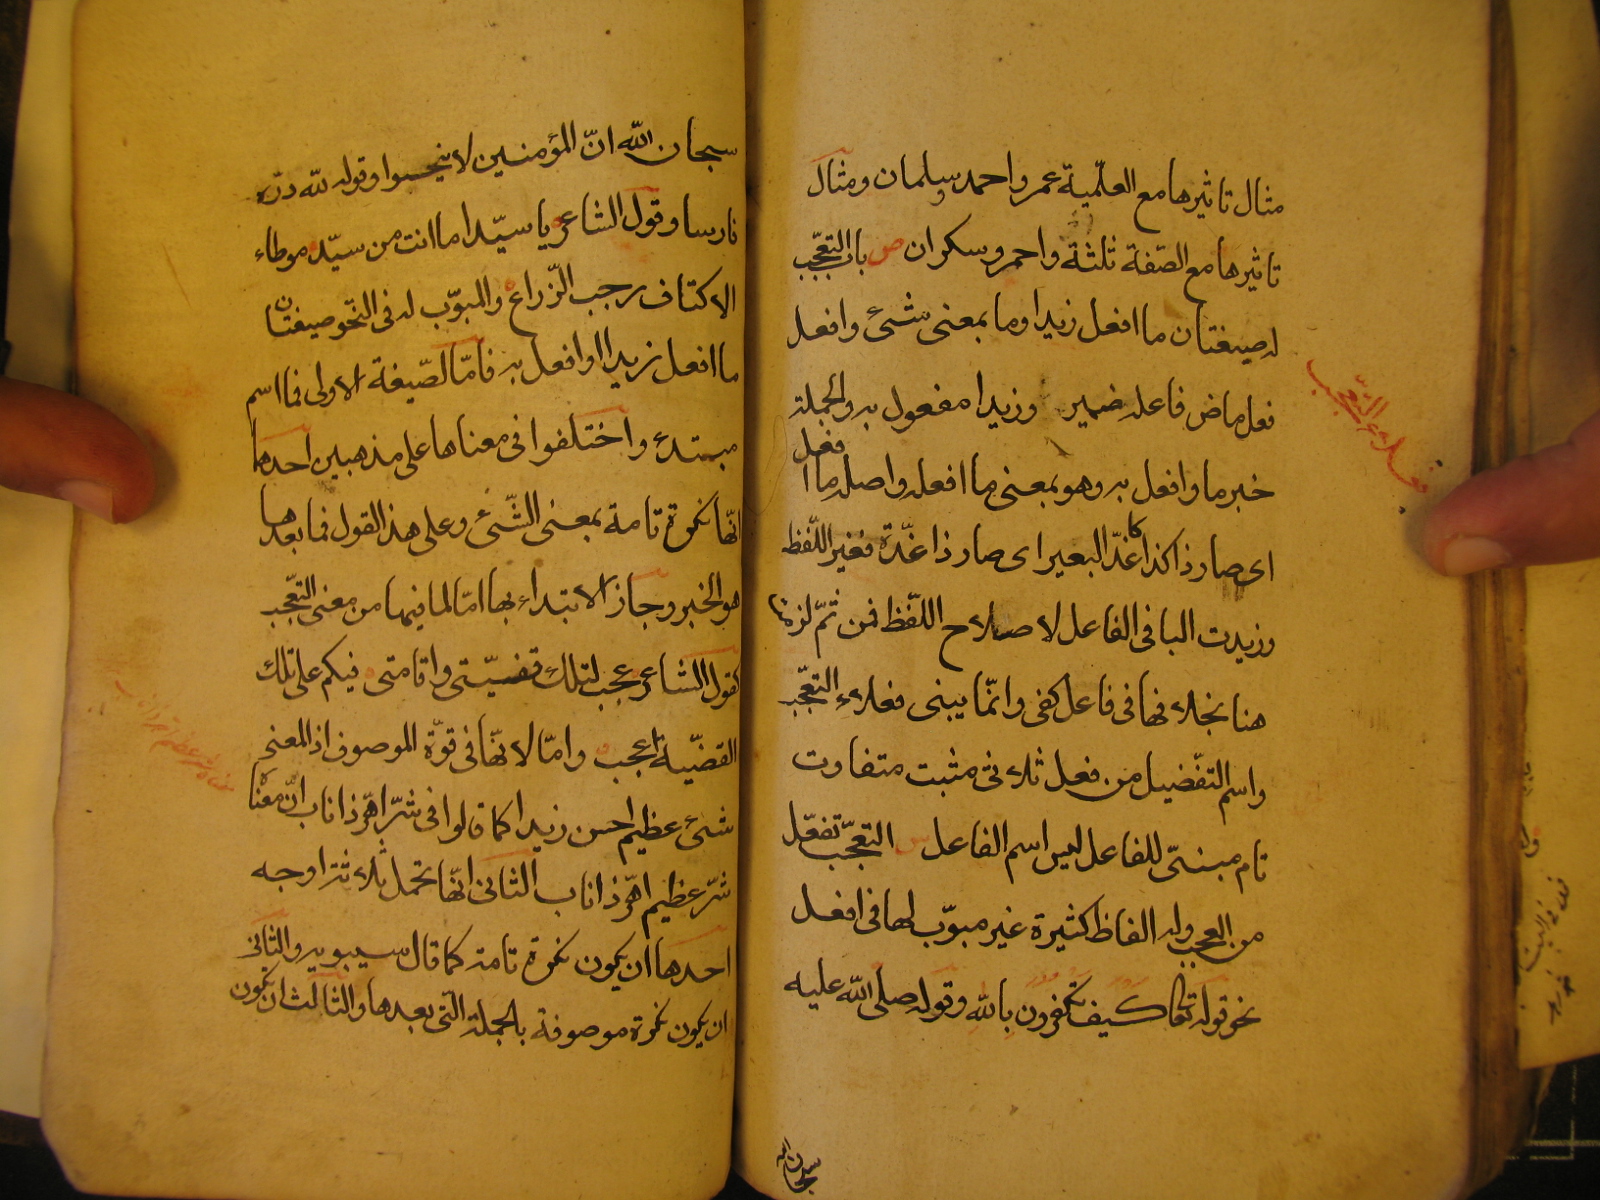 مثال تاثيرها مع العلّمية عمر واحمد وسلمان ومثال
تاثيرها مع الصّفة ثلثة واحمر وسكران ص باب التعجّب
له صيغتان ما افعل زيدا وما بمعنى شئ وافعل
فعل ماض فاعله ضمير وزيدا مفعول به والجملة
خبر ما وافعل به وهو بمعنى ما افعله واصله ما افعل
اى صار ذا كذا كاغدّ البعير اى صار ذا غدّة فغير اللّفظ
وزيدت البا فى الفاعل لاصلاح اللّفظ فمن ثمّ لزمنا
هنا بخلافها فى فاعل كفى وانّما يبنى فعلاء التعجّب
واسم التفضيل من فعل ثلاثى مثبت متفاوت
تام مبنىّ للفاعل ليس اسم الفاعل س التعجّب تفعّل
من العجب وله الفاظ كثيرة غير مبوّب لها فى افعل
نحو قوله تعا كيف تكفرون بالله وقوله صلى الله عليه
فعلاء التعجّب
سبحان الله
سبحان الله انّ المؤمنين لا ينجسوا وقوله لله درّه
فارسا وقول الشاعر يا سيّدا ما انت من سيّد موطاء
الاكتاف رحب الزّراع والمبوّب له فى النحو صيغتان
ما افعل زيدا اوافعل به فامّا الصّيغة الاولى فما اسم
مبتدء واختلفوا فى معناها على مذهبين احدها
انّها نكرة تامة بمعنى الشّئ وعلى هذ القول فما بعدها
هو الخبر وجاز الابتداء بها امّا لما فيها من معنى التعّجب
كقول الشاعر عجب لتلك قضيّتى واقامتى فيكم على تلك
القضيّة اعجب وامّا لانّها فى قوّة الموصوف اذ المعنى
شئ عظيم احسن زيدا كما قالوا فى شرّ اهرّ ذا ناب انّ معناه
شرّ عظيم اهرّ ذا ناب الثانى انّها تحمل ثلاثة اوجه
احدها ان يكون نكرة تامة كما قال سيبويه والثانى
ان يكون نكرة موصوفة بالجملة الّتى بعدها والثالث ان يكون